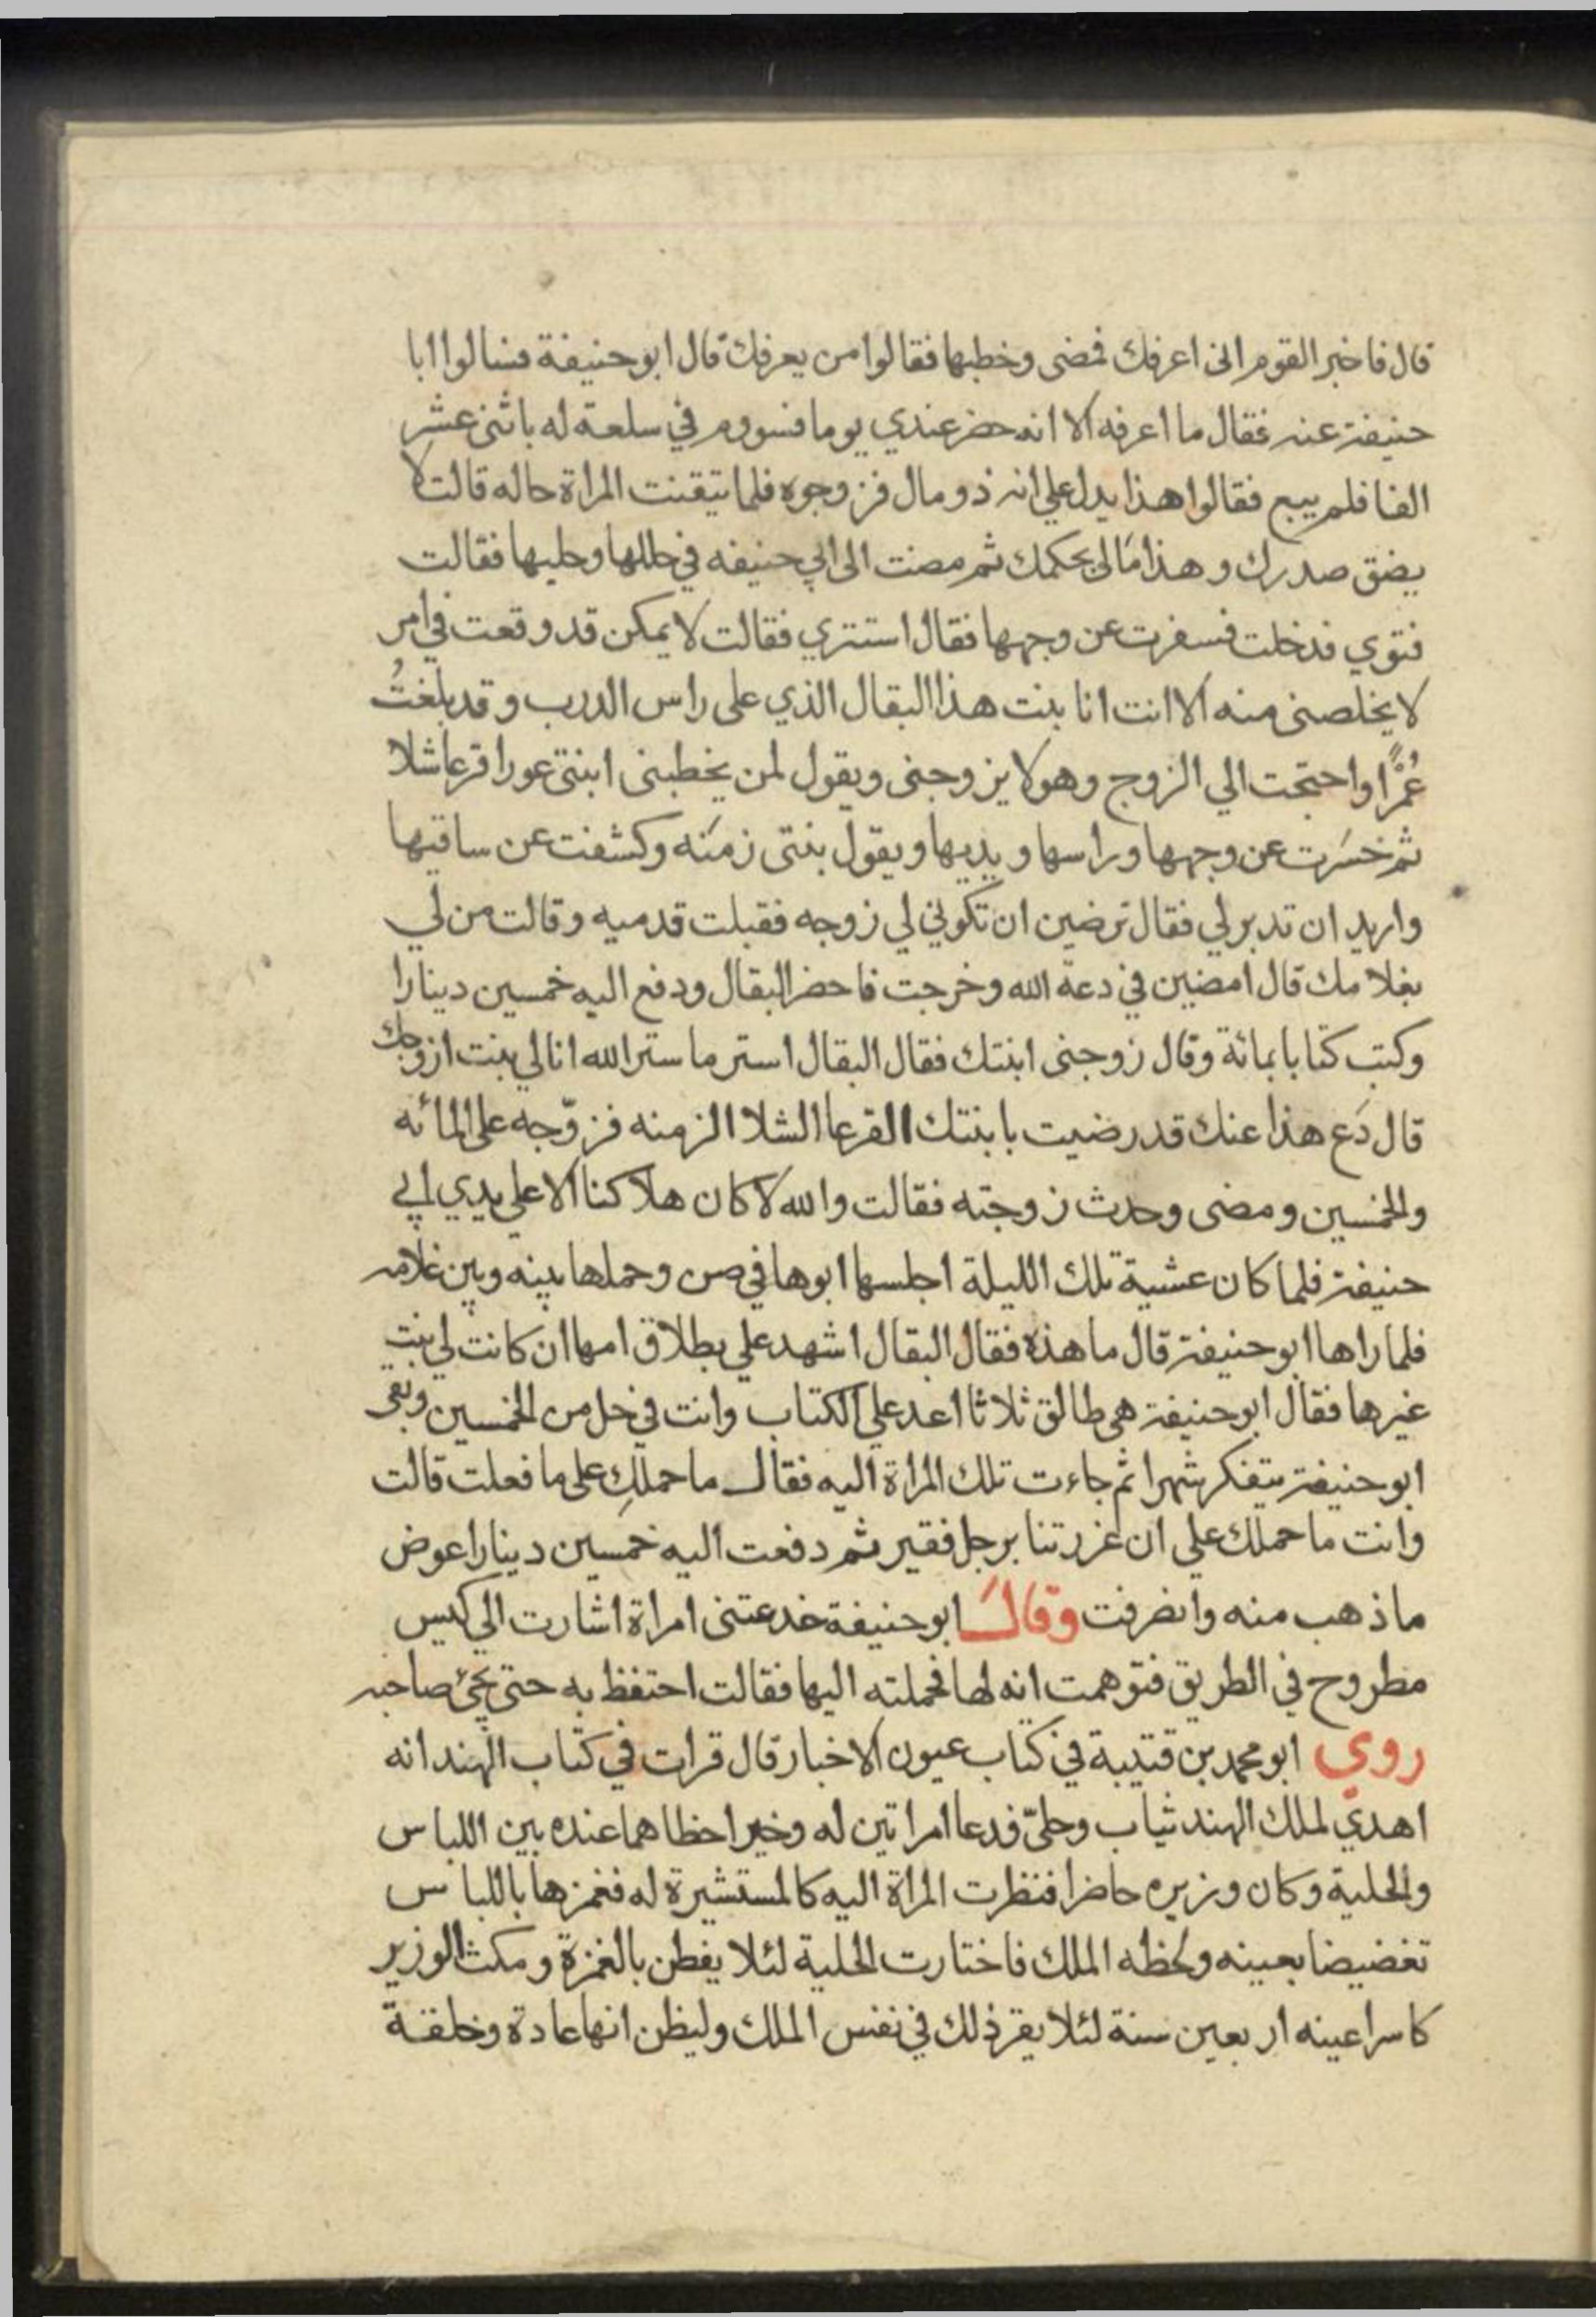 قال فاخبر القوم اني اعرفك فمضى وخطبها فقالوا من يعرفك قال ابو حنيفة فسالوا ابا
حنيفة عنه فقال ما اعرفه الا انه حضر عندي يوما فسووم في سلعة له باثنى عشر
الفا فلم يبع فقالوا هذا يدل علي انه ذو مال فزوجوه فلما تيقنت المراة حاله قالت لا
يضق صدرك وهذا مَالى بحكمك ثم مضت الى ابي حنيفه في حللها وحليها فقالت
فتوي فدخلت فسفرت عن وجهها فقال استتري فقالت لا يمكن قد وقعت في امر
لا يخلصنى منه الا انت انا بنت هذا البقال الذي على راس الدرب وقد بلغتُ
عُمرًا واحتجت الي الزوج وهو لا يزوجنى ويقول لمن يخطبنى ابنتي عورا قرعا شلا
ثم خسَرت عن وجهها وراسها ويديها ويقول بنتى زمَنه وكشفت عن ساقيها
واريد ان تدبر لي فقال ترضين ان تكوني لي زوجه فقبلت قدميه وقالت من لي
بغلامك قال امضين في دعة الله وخرجت فاحضر البقال ودفع اليه خمسين دينارا
وكتب كتابا بمائة وقال زوجنى ابنتك فقال البقال استر ما ستر الله انا لي بنت ازوجك
قال دَع هذا عنك قد رضيت بابنتك القرعا الشلا الزمنه فزوّجه على المائه
والخمسين ومضى وحدث زوجته فقالت والله لا كان هلاكنا الا علي يدي ابي
حنيفة فلما كان عشية تلك الليلة اجلسها ابوها في صن وحملها بينه وبين غلامه
فلما راها ابو حنيفة قال ما هذه فقال البقال اشهد علي بطلاق امها ان كانت لي بنت
غيرها فقال ابو حنيفة هى طالق ثلاثا اعد علي الكتاب وانت في حل من الخمسين وبقى
ابو حنيفة يتفكر شهرا ثم جاءت تلك المراة اليه فقال ما حملكِ على ما فعلت قالت
وانت ما حملك علي ان غررتنا برجل فقير ثم دفعت اليه خمسين دينارا عوض
ما ذهب منه وانصرفت وقالَ ابو حنيفة خدعتنى امراة اشارت الي كيس
مطروح في الطريق فتوهمت انه لها فحملته اليها فقالت احتفظ به حتى يجئ صاحبه
روي ابو محمد بن قتيبة في كتاب عيون الاخبار قال قرات في كتاب الهند انه
اهدي لملك الهند ثياب وحليّ فدعا امراتين له وخير احظاهما عنده بين اللباس
والحلية وكان وزيره حاضرا فنظرت المراة اليه كالمستشيرة له فغمزها باللباس
تغضيضا بعينه ولحظه الملك فاختارت الحلية لئلا يفطن بالغمزة ومكث الوزير
كاسرا عينه اربعين سنة لئلا يقر ذلك في نفس الملك وليظن انها عادة وخلقة